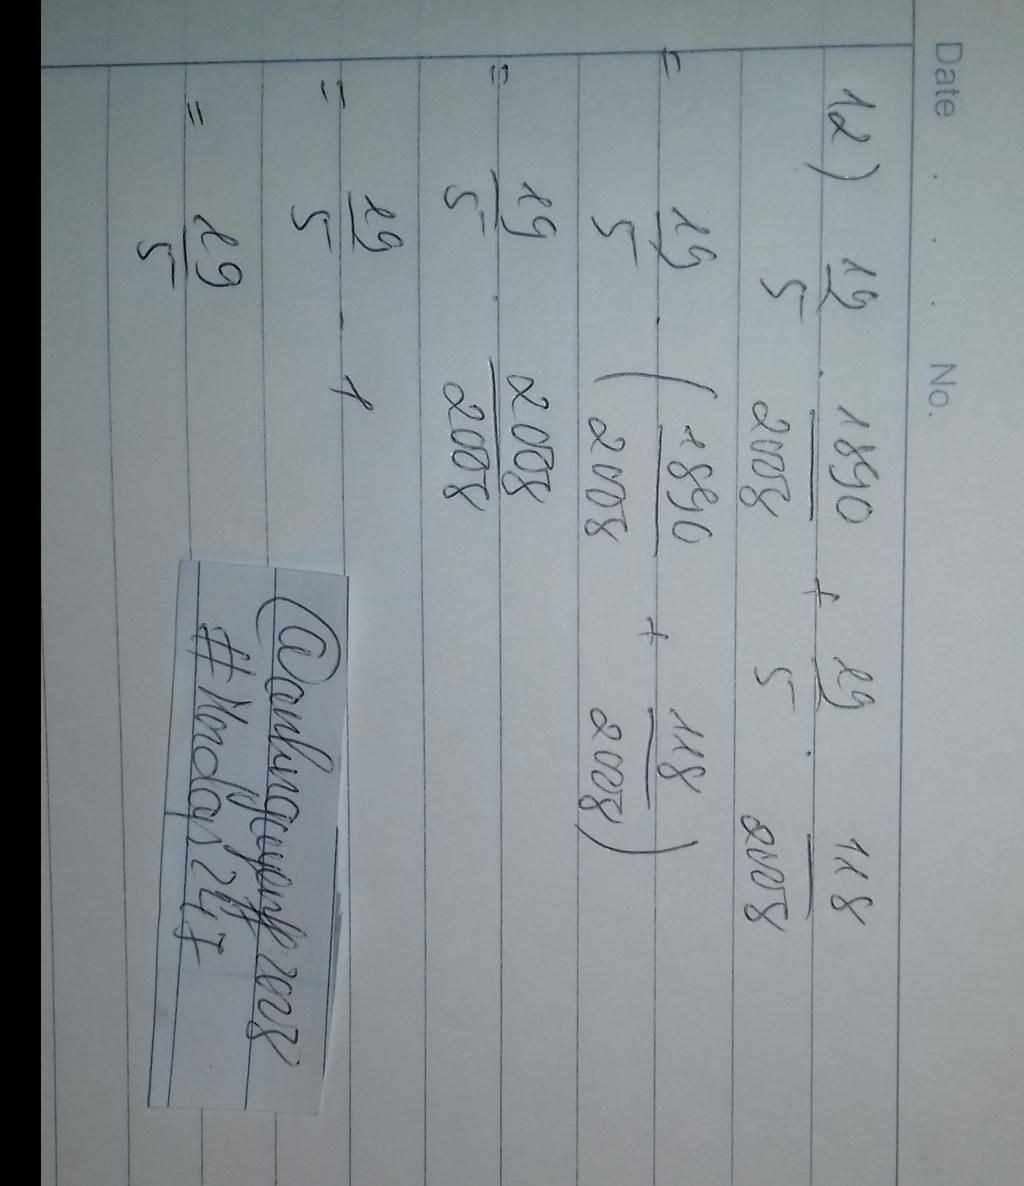 Date . . . No.
12) 19/5 . 1890/2008 + 19/5 . 118/2008
= 19/5 . (1890/2008 + 118/2008)
= 19/5 . 2008/2008
= 19/5 . 1
= 19/5